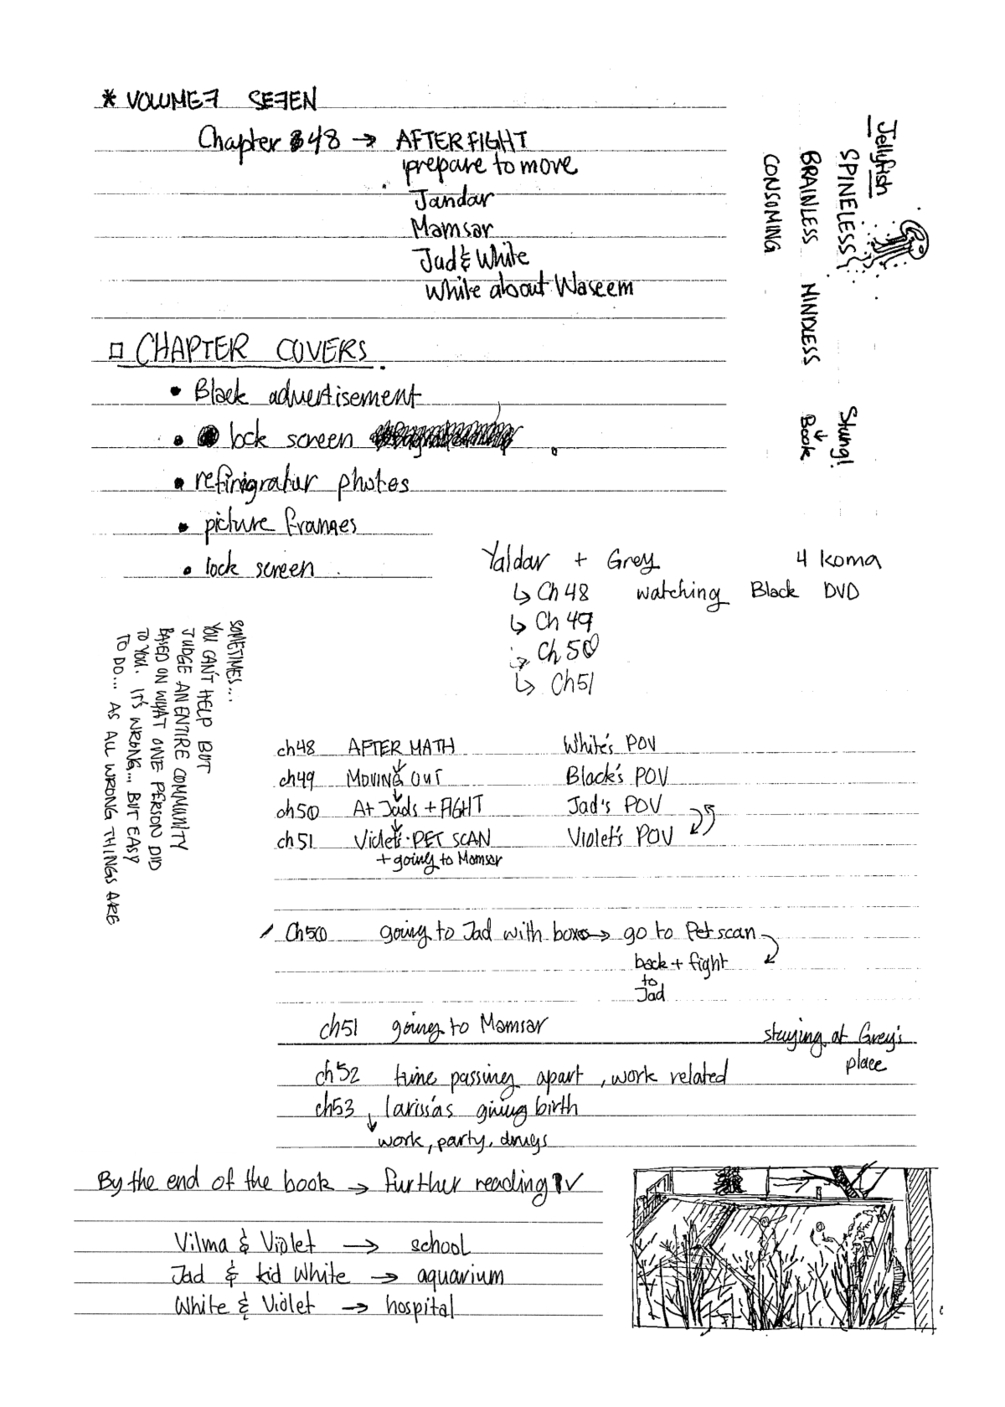 * VOLUME7 SE7EN
Chapter 48 → AFTERFIGHT
prepare to move
Jandar
Mamsar
Jad & White
White about Waseem
□ CHAPTER COVERS
• Black advertisement
• lock screen
• refinigratur photos
• picture frames
• lock screen
Jellyfish
SPINELESS
BRAINLESS MINDLESS
CONSUMING
Stung!
↓
Book
Yaldar + Grey 4 koma
↳ Ch48 watching Black DVD
↳ Ch49
↳ Ch50
↳ Ch51
SOMETIMES...
YOU CAN'T HELP BUT
JUDGE AN ENTIRE COMMUNITY
BASED ON WHAT ONE PERSON DID
TO YOU. IT'S WRONG... BUT EASY
TO DO... AS ALL WRONG THINGS ARE
ch48 AFTER MATH White's POV
ch49 MOVING OUT Black's POV
ch50 At Jads + FIGHT Jad's POV
ch51 Violet's PET SCAN Violet's POV
+ going to Mamsar
Ch50 going to Jad with box → go to Pet scan
back + fight
to
Jad
ch51 going to Mamsar
staying at Grey's
place
ch52 time passing apart, work related
ch53 larissas giving birth
work, party, drugs
By the end of the book → further reading
Vilma & Violet → school
Jad & kid White → aquarium
White & Violet → hospital